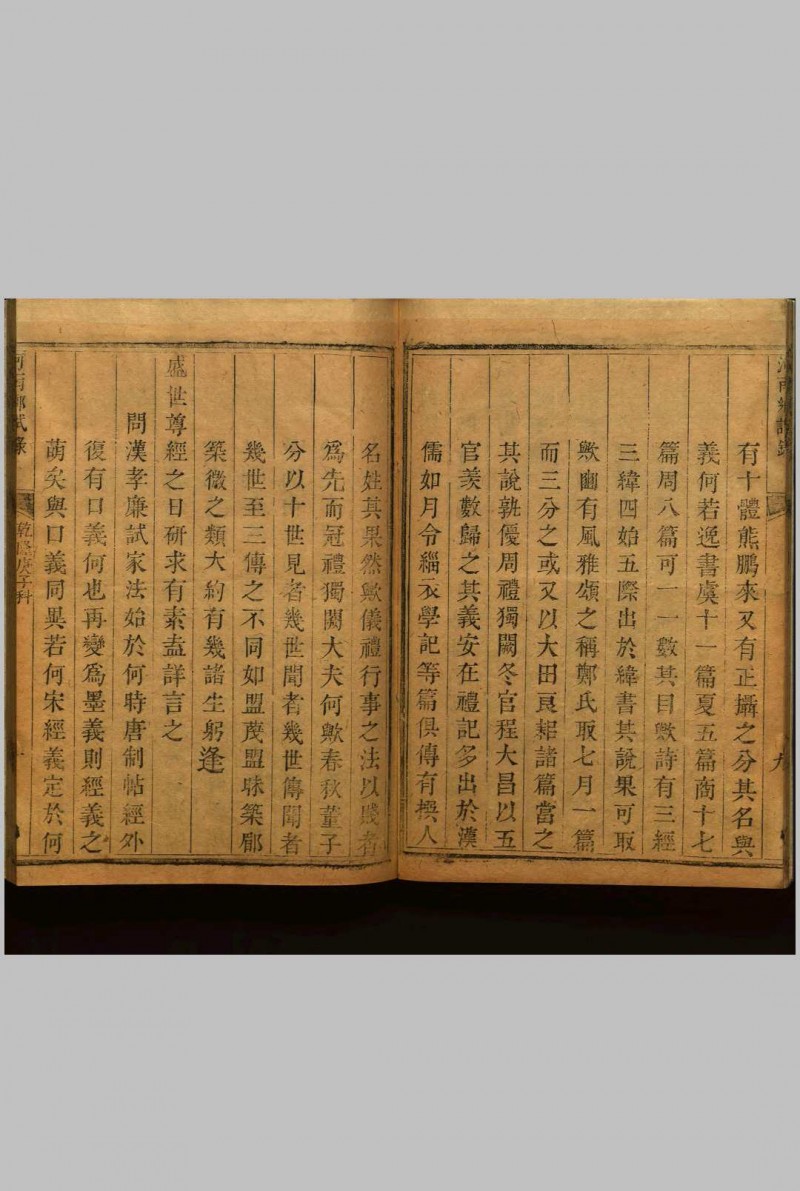 有十體熊鵬來又有正攝之分其名與
義何若逸書虞十一篇夏五篇商十七
篇周八篇可一一數其目歟詩有三經
三緯四始五際出於緯書其說果可取
歟豳有風雅頌之稱鄭氏取七月一篇
而三分之或又以大田良耜諸篇當之
其說孰優周禮獨闕冬官程大昌以五
官羡數歸之其義安在禮記多出於漢
儒如月令緇衣學記等篇俱傳有撰人
名姓其果然歟儀禮行事之法以賤者
爲先而冠禮獨闕大夫何歟春秋董子
分以十世見者幾世聞者幾世傳聞者
幾世至三傳之不同如盟蔑盟昧築郿
築微之類大約有幾諸生躬逢
盛世尊經之日研求有素盍詳言之
問漢孝廉試家法始於何時唐制帖經外
復有口義何也再變爲墨義則經義之
萌矣與口義同異若何宋經義定於何
河南鄉試錄
乾隆庚子科